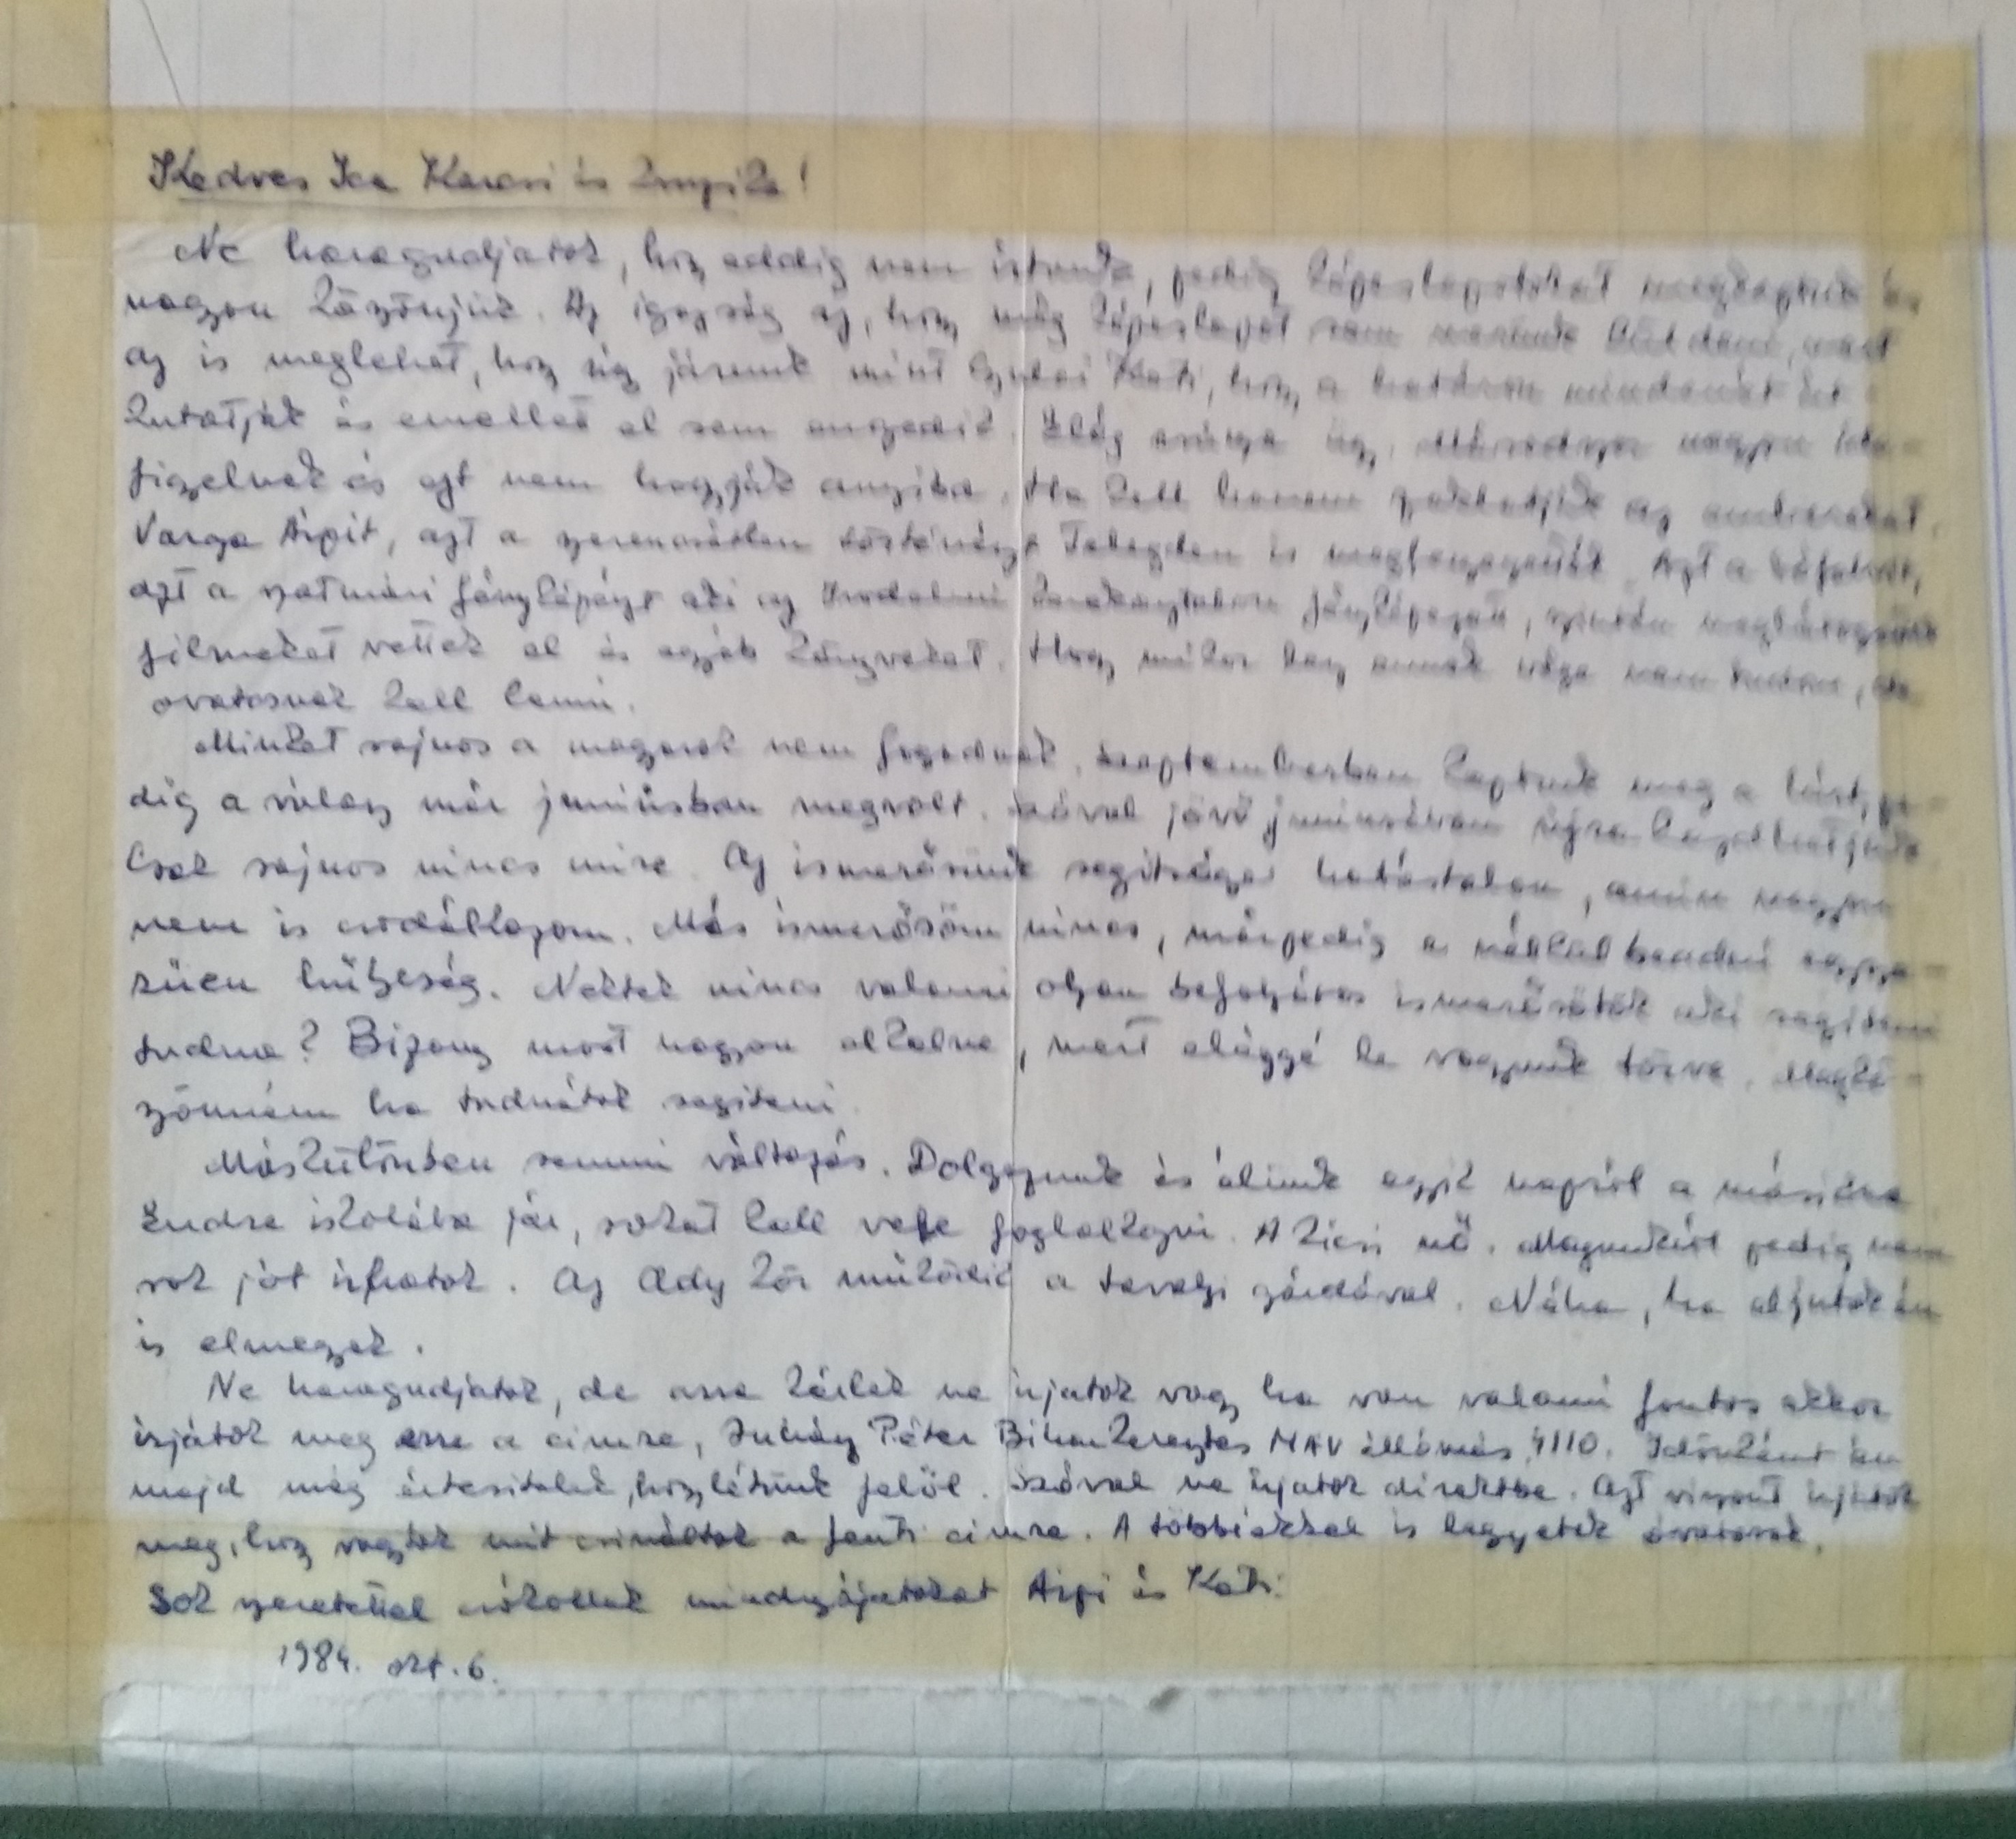 Kedves Ica Karcsi és
Ne haragudjatok, hogy eddig nem írtunk, pedig képeslapotokat megkaptuk és
nagyon köszönjük. Az igazság az, hogy még képeslapot sem merünk küldeni, mert
az is meglehet, hogy úgy járunk mint Gyulai Kati, hogy a határon mindenét át-
kutatják és emellet el sem engedik. Elég csúnya ügy. Másodszor nagyon
figyelnek és ezt nem hagyják annyiba. Ha kell hanem zaklatják az embereket.
Varga Árpit, azt a szerencsétlen történészt Telegden is megfenyegették. Azt a
azt a szatmári fényképészt aki az Irodalmi fényképezett, szintén
filmeket vettek el és egyéb könyveket. Hogy mikor lesz ennek vége nem tudom, de
ovatosnak kell lenni.
Minket sajnos a magyarok nem fogadnak. Szeptemberben kaptuk meg a hírt, pe-
dig a válasz már juniusban megvolt. Szóval jövő juniusában újra kezdhetjük
Csak sajnos nincs mire. Az ismerősünk segitsége hatástalan, amin nagyon
nem is csodálkozom. Más ismerősöm nincs, márpedig a nélkül beadni egysze-
rüen hülyeség. Nektek nincs valami olyan befolyásos ismerősötök aki segiteni
tudna? Bizony most nagyon elkelne, mert eléggé le vagyunk törve. Megkö-
szönném ha tudnátok segiteni.
Máskülönben semmi változás. Dolgozunk és élünk egyik napról a másikra
Endre iskolába jár, sokat kell vele foglalkozni. A kicsi nő. Magunkról pedig nem
sok jót irhatok. Az Ady kör müködik a tavalyi gárdával. Néha, ha eljutok én
is elmegyek.
Ne haragudjatok, de arra kérlek ne irjatok vagy ha van valami fontos akkor
irjátok meg erre a cimre, Juhász Péter Biharkeresztes MÁV állomás, 4110. Időnként én
majd még értesitelek, hogylétünk felől. Szóval ne irjatok direktbe. Azt viszont irjátok
meg, hogy vagytok mit csináltok a fenti cimre. A többiekkel is legyetek óvatosak.
Sok szeretettel csókollak mindnyájatokat Árpi és Kati.
1984. okt. 6.